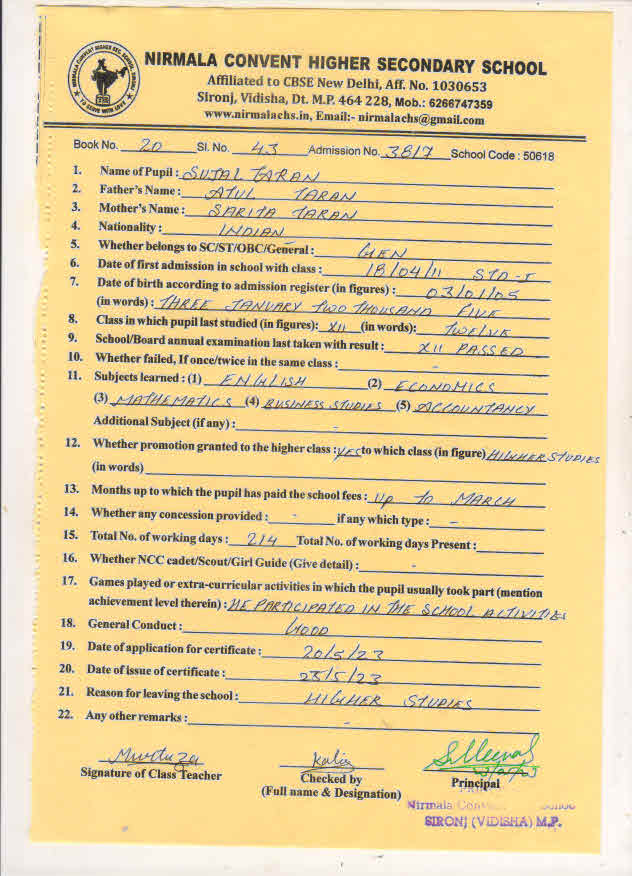 NIRMALA CONVENT HIGHER SEC. SCHOOL, SIRONJ
TO SERVE WITH LOVE
NIRMALA CONVENT HIGHER SECONDARY SCHOOL
Affiliated to CBSE New Delhi, Aff. No. 1030653
Sironj, Vidisha, Dt. M.P. 464 228, Mob.: 6266747359
www.nirmalachs.in, Email:- nirmalachs@gmail.com
Book No. 20 Sl. No. 43 Admission No. 3817 School Code : 50618
1. Name of Pupil : SUJAL TARAN
2. Father's Name : ATUL TARAN
3. Mother's Name : SARITA TARAN
4. Nationality : INDIAN
5. Whether belongs to SC/ST/OBC/General : GEN
6. Date of first admission in school with class : 18/04/11 STD-I
7. Date of birth according to admission register (in figures) : 03/01/05
(in words) : THREE JANUARY TWO THOUSAND FIVE
8. Class in which pupil last studied (in figures): XII (in words): TWELVE
9. School/Board annual examination last taken with result : XII PASSED
10. Whether failed, If once/twice in the same class : -
11. Subjects learned : (1) ENGLISH (2) ECONOMICS
(3) MATHEMATICS (4) BUSINESS STUDIES (5) ACCOUNTANCY
Additional Subject (if any) : -
12. Whether promotion granted to the higher class : YES to which class (in figure) HIGHER STUDIES
(in words)
13. Months up to which the pupil has paid the school fees : UP TO MARCH
14. Whether any concession provided : - if any which type : -
15. Total No. of working days : 214 Total No. of working days Present :
16. Whether NCC cadet/Scout/Girl Guide (Give detail) : -
17. Games played or extra-curricular activities in which the pupil usually took part (mention
achievement level therein) : HE PARTICIPATED IN THE SCHOOL ACTIVITIES
18. General Conduct : GOOD
19. Date of application for certificate : 20/5/23
20. Date of issue of certificate : 23/5/23
21. Reason for leaving the school : HIGHER STUDIES
22. Any other remarks : -
Signature of Class Teacher
Checked by
(Full name & Designation)
Principal
Nirmala
SIRONJ (VIDISHA) M.P.